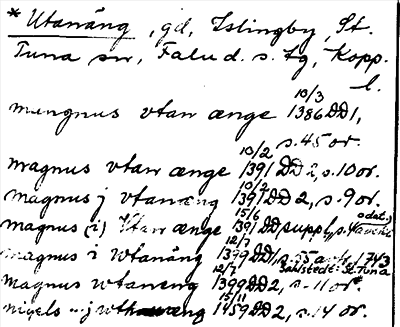 * Utanäng, gd, Islingby, St.
Tuna sn, Falu d. s. tg, Kopp.
l.
mangnus vtan ænge 10/3 1386 DD 1,
s. 45 or.
magnus vtan ænge 10/2 1391 DD 2, s. 10 or.
magnus j vtanæng 10/2 1391 DD 2, s. 9 or.
magnus (i) Vtan ænge 15/6 1391 DD suppl, s. 4 odat.
magnus i Wtanäng 12/7 1399 DD 1, s. 55 1743
Sahlstedt: St. Tuna
magnus wtaneng 12/7 1399 DD 2, s. 11 or
nigels j 15/11 1459 DD 2, s. 14 or.